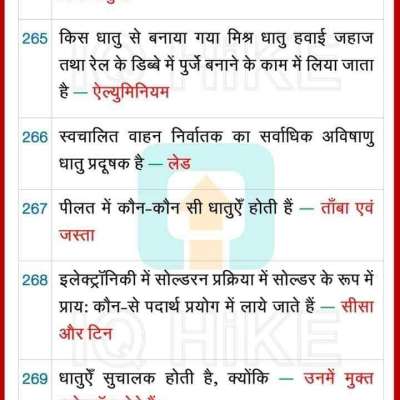 265 किस धातु से बनाया गया मिश्र धातु हवाई जहाज
तथा रेल के डिब्बे में पुर्जे बनाने के काम में लिया जाता
है — ऐल्युमिनियम
266 स्वचालित वाहन निर्वातक का सर्वाधिक अविषाणु
धातु प्रदूषक है — लेड
267 पीलत में कौन-कौन सी धातुएँ होती हैं — ताँबा एवं
जस्ता
268 इलेक्ट्रॉनिकी में सोल्डरन प्रक्रिया में सोल्डर के रूप में
प्राय: कौन-से पदार्थ प्रयोग में लाये जाते हैं — सीसा
और टिन
269 धातुएँ सुचालक होती है, क्योंकि — उनमें मुक्त
IQ HiKE
IQ HiKE